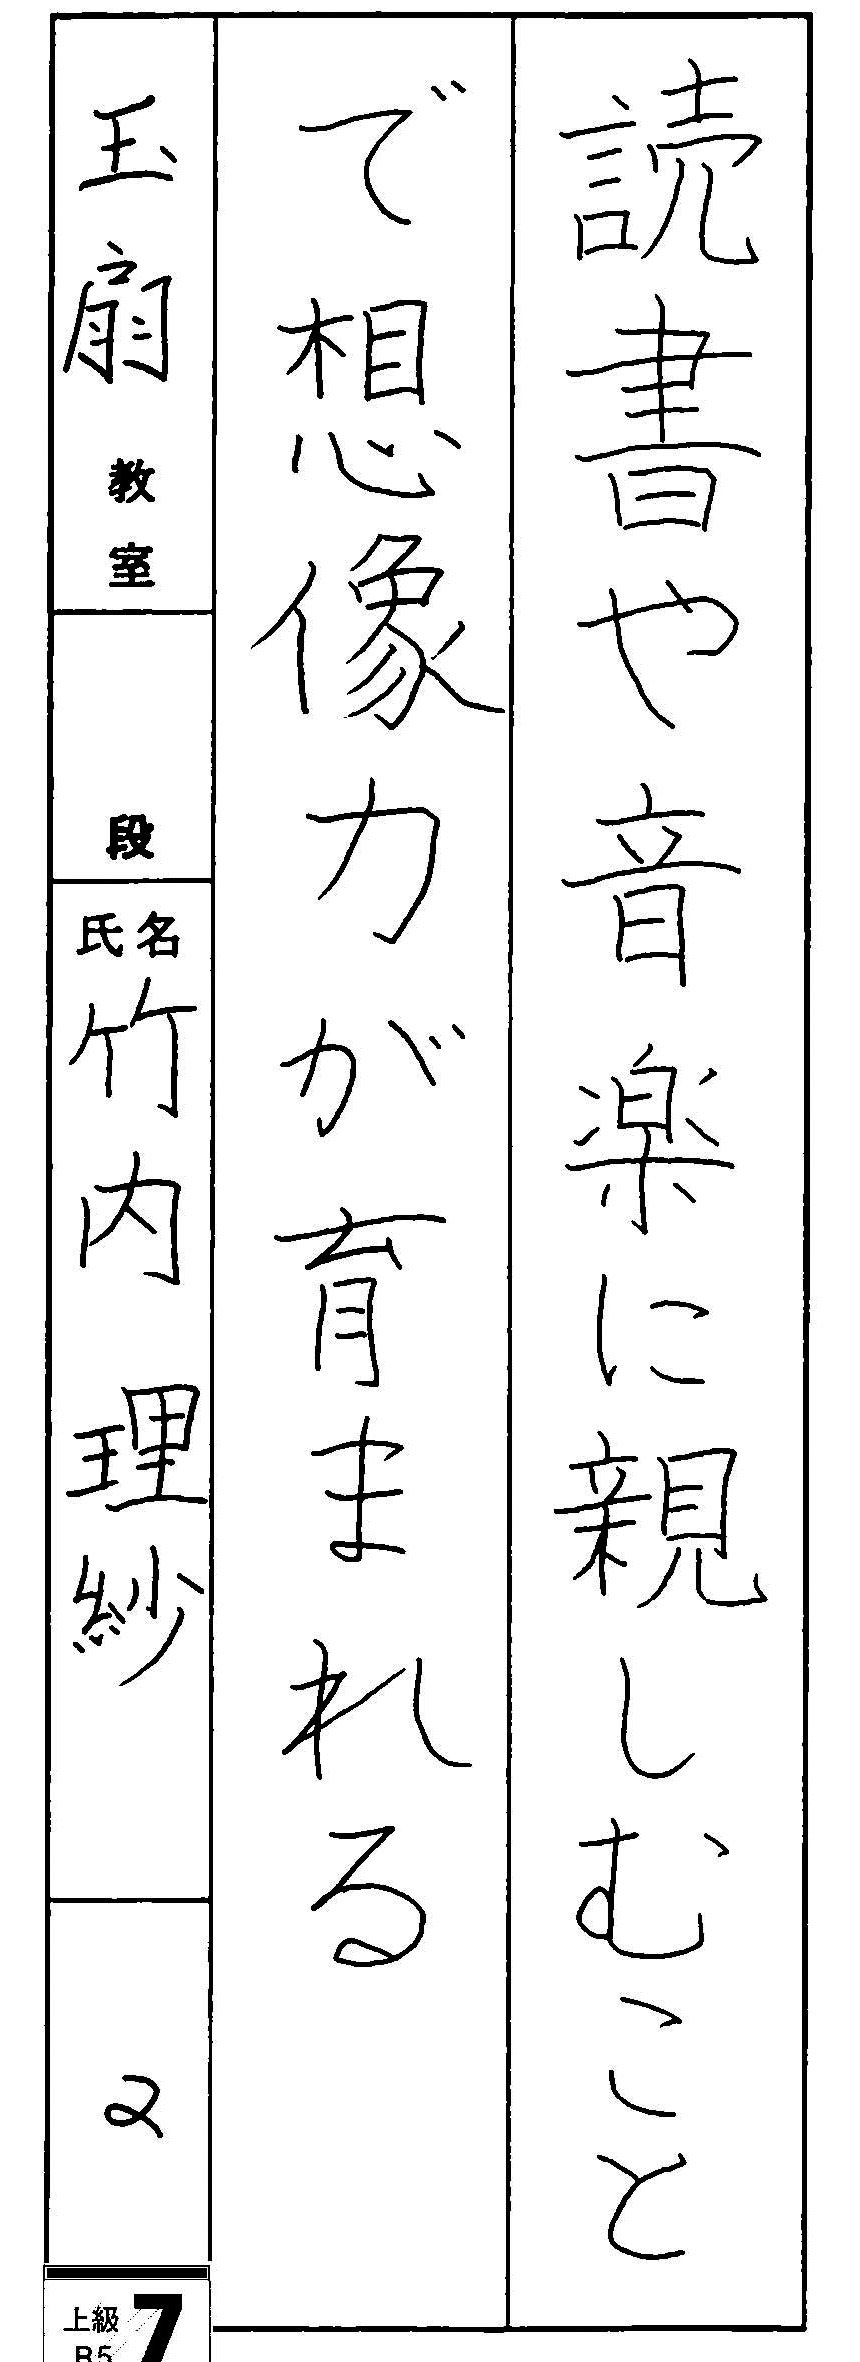 読書や音楽に親しむこと
で想像力が育まれる
玉扇教室
段
氏名
竹内理紗
2
上級
R5
7